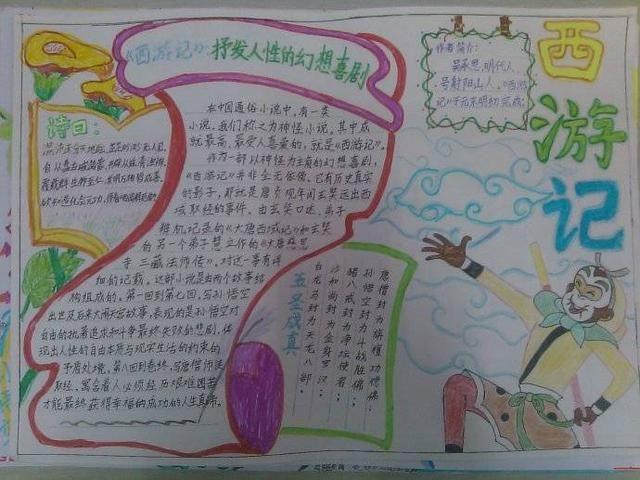 西游记
《西游记》：抒发人性的幻想喜剧
作者简介：
吴承恩，明代人，
号射阳山人，《西游
记》于万末明初完成。
诗曰：
在中国通俗小说中，有一类
小说，我们称之为神怪小说，其中成
就最高、最受人喜爱的，就是《西游记》。
作为一部以神怪为主角的幻想喜剧，
《西游记》并非全无依傍，它有历史真实
的影子，那就是唐贞观年间玄奘远出西
域取经的事件。由玄奘口述，弟子
辩机记录的《大唐西域记》和玄奘
的另一个弟子慧立作的《大唐慈恩
寺三藏法师传》，对这一事有详
细的记载。这部小说是由两个故事结
构组成的。第一回到第七回，写孙悟空
出世及后来大闹天宫故事，表现的是孙悟空对
自由的执著追求和斗争最终失败的悲剧，体
现出人性的自由本质与现实生活的约束的
矛盾处境。第八回到卷终，写唐僧师徒
取经，寓含着人必须经历艰难困苦
才能最终获得幸福的成功的人生真谛。
五圣成真
唐僧封为旃檀功德佛；
孙悟空封为斗战胜佛；
猪八戒封为净坛使者；
沙和尚封为金身罗汉；
白龙马封为天龙八部；